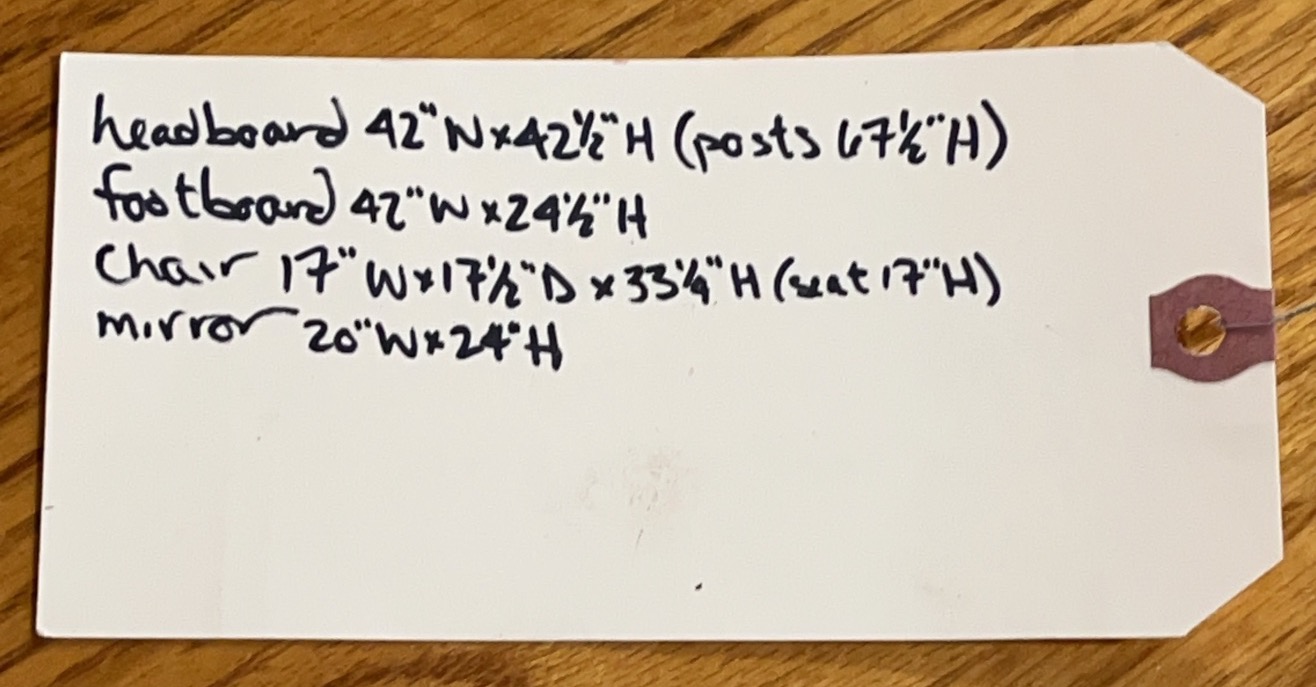 headboard 42"W x 42½"H (posts 67½"H)
footboard 42"W x 24½"H
Chair 17"W x 17½"D x 33¼"H (seat 17"H)
mirror 20"W x 24"H